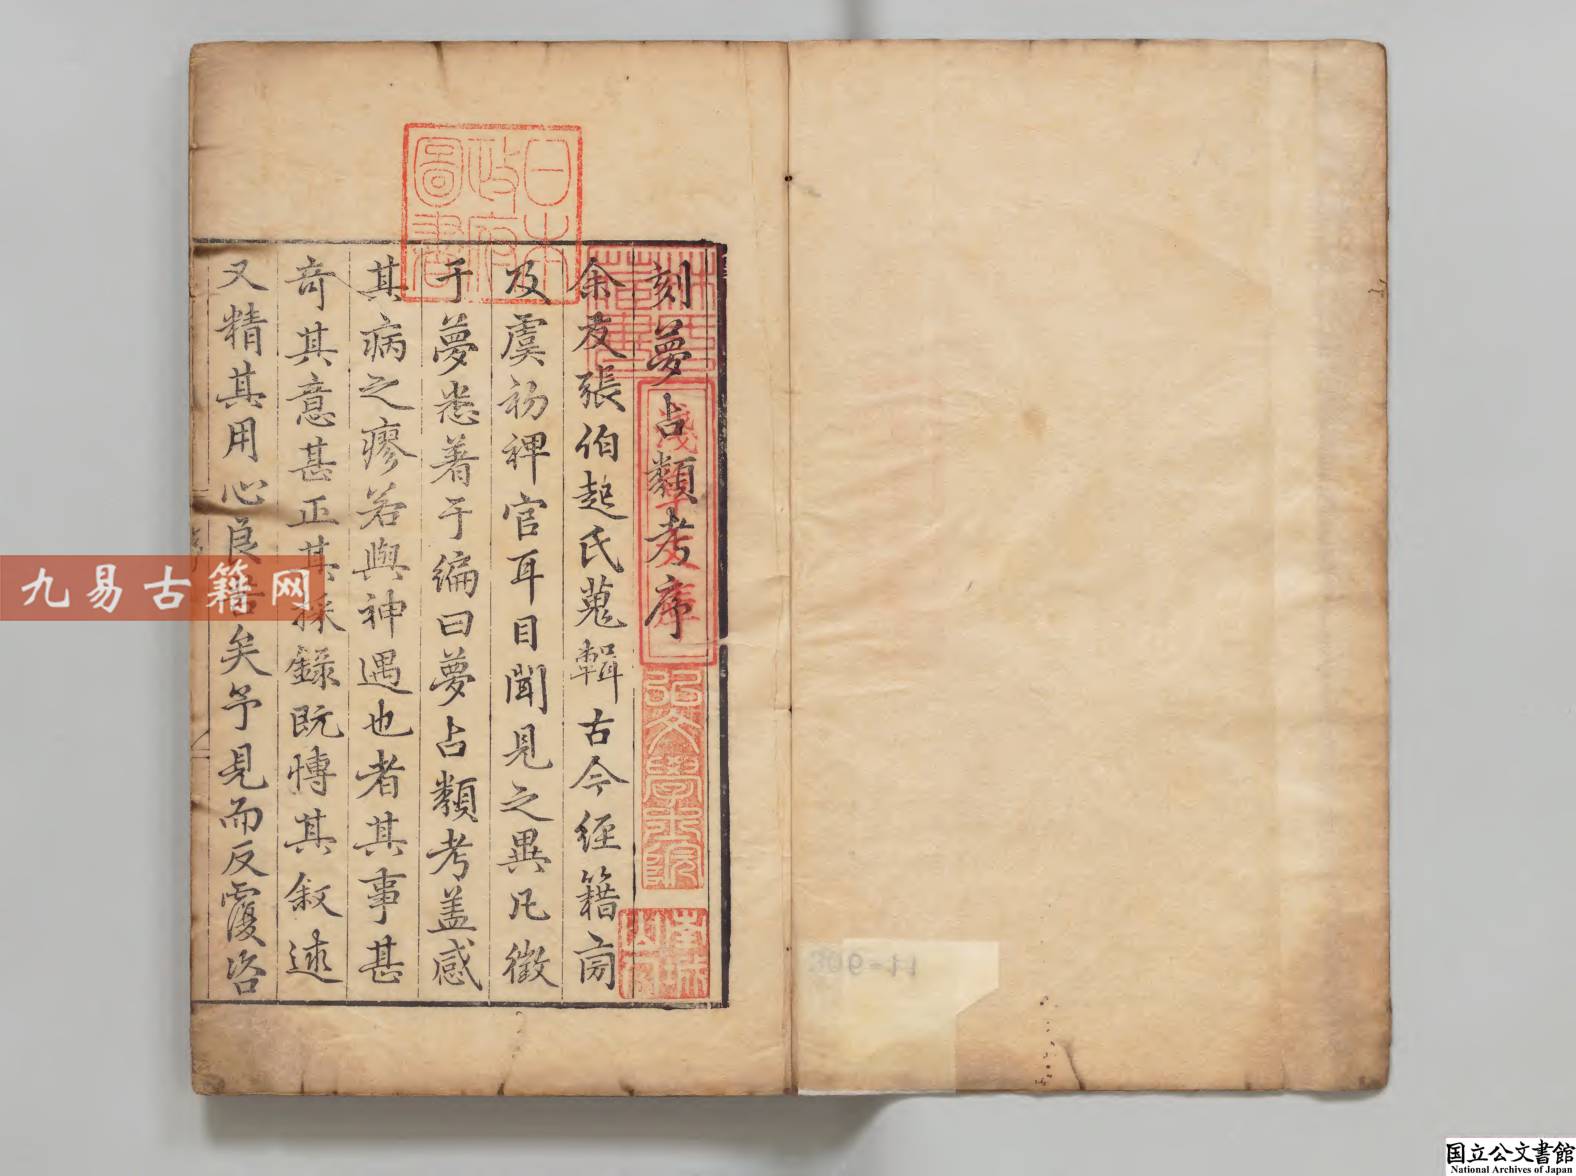 刻夢占類考序
余友張伯起氏蒐輯古今經籍高
及虞初裨官耳目聞見之異凡徵
于夢悉著于編曰夢占類考蓋感
其病之瘳若與神遇也者其事甚
竒其意甚正其採録既愽其叙述
又精其用心良苦矣予見而反覆咨
日本
政府
圖書
林氏
藏書
淺草文庫
弘文學士院
九易古籍网
国立公文書館
National Archives of Japan